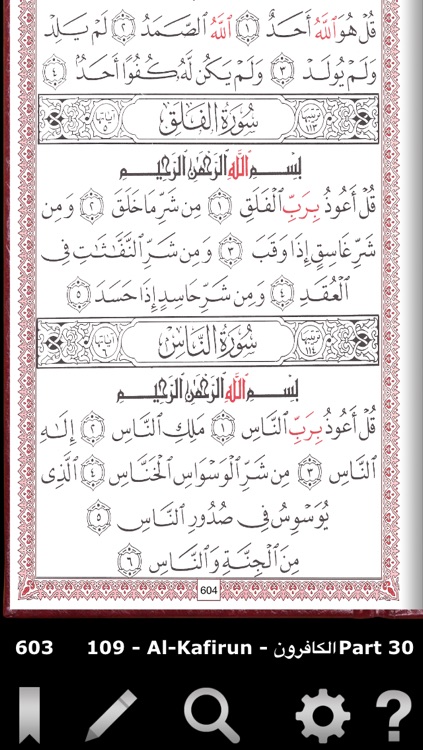 قُلْ هُوَ ٱللَّهُ أَحَدٌ ١ ٱللَّهُ ٱلصَّمَدُ ٢ لَمْ يَلِدْ
وَلَمْ يُولَدْ ٣ وَلَمْ يَكُن لَّهُۥ كُفُوًا أَحَدٌۢ ٤
ترتيبها ١١٣ سُورَةُ الفَلَقِ آياتها ٥
بِسْمِ ٱللَّهِ ٱلرَّحْمَٰنِ ٱلرَّحِيمِ
قُلْ أَعُوذُ بِرَبِّ ٱلْفَلَقِ ١ مِن شَرِّ مَا خَلَقَ ٢ وَمِن
شَرِّ غَاسِقٍ إِذَا وَقَبَ ٣ وَمِن شَرِّ ٱلنَّفَّٰثَٰتِ فِى
ٱلْعُقَدِ ٤ وَمِن شَرِّ حَاسِدٍ إِذَا حَسَدَ ٥
ترتيبها ١١٤ سُورَةُ النَّاسِ آياتها ٦
بِسْمِ ٱللَّهِ ٱلرَّحْمَٰنِ ٱلرَّحِيمِ
قُلْ أَعُوذُ بِرَبِّ ٱلنَّاسِ ١ مَلِكِ ٱلنَّاسِ ٢ إِلَٰهِ
ٱلنَّاسِ ٣ مِن شَرِّ ٱلْوَسْوَاسِ ٱلْخَنَّاسِ ٤ ٱلَّذِى
يُوَسْوِسُ فِى صُدُورِ ٱلنَّاسِ ٥
مِنَ ٱلْجِنَّةِ وَٱلنَّاسِ ٦
604
603 109 - Al-Kafirun - الكافرون Part 30
?